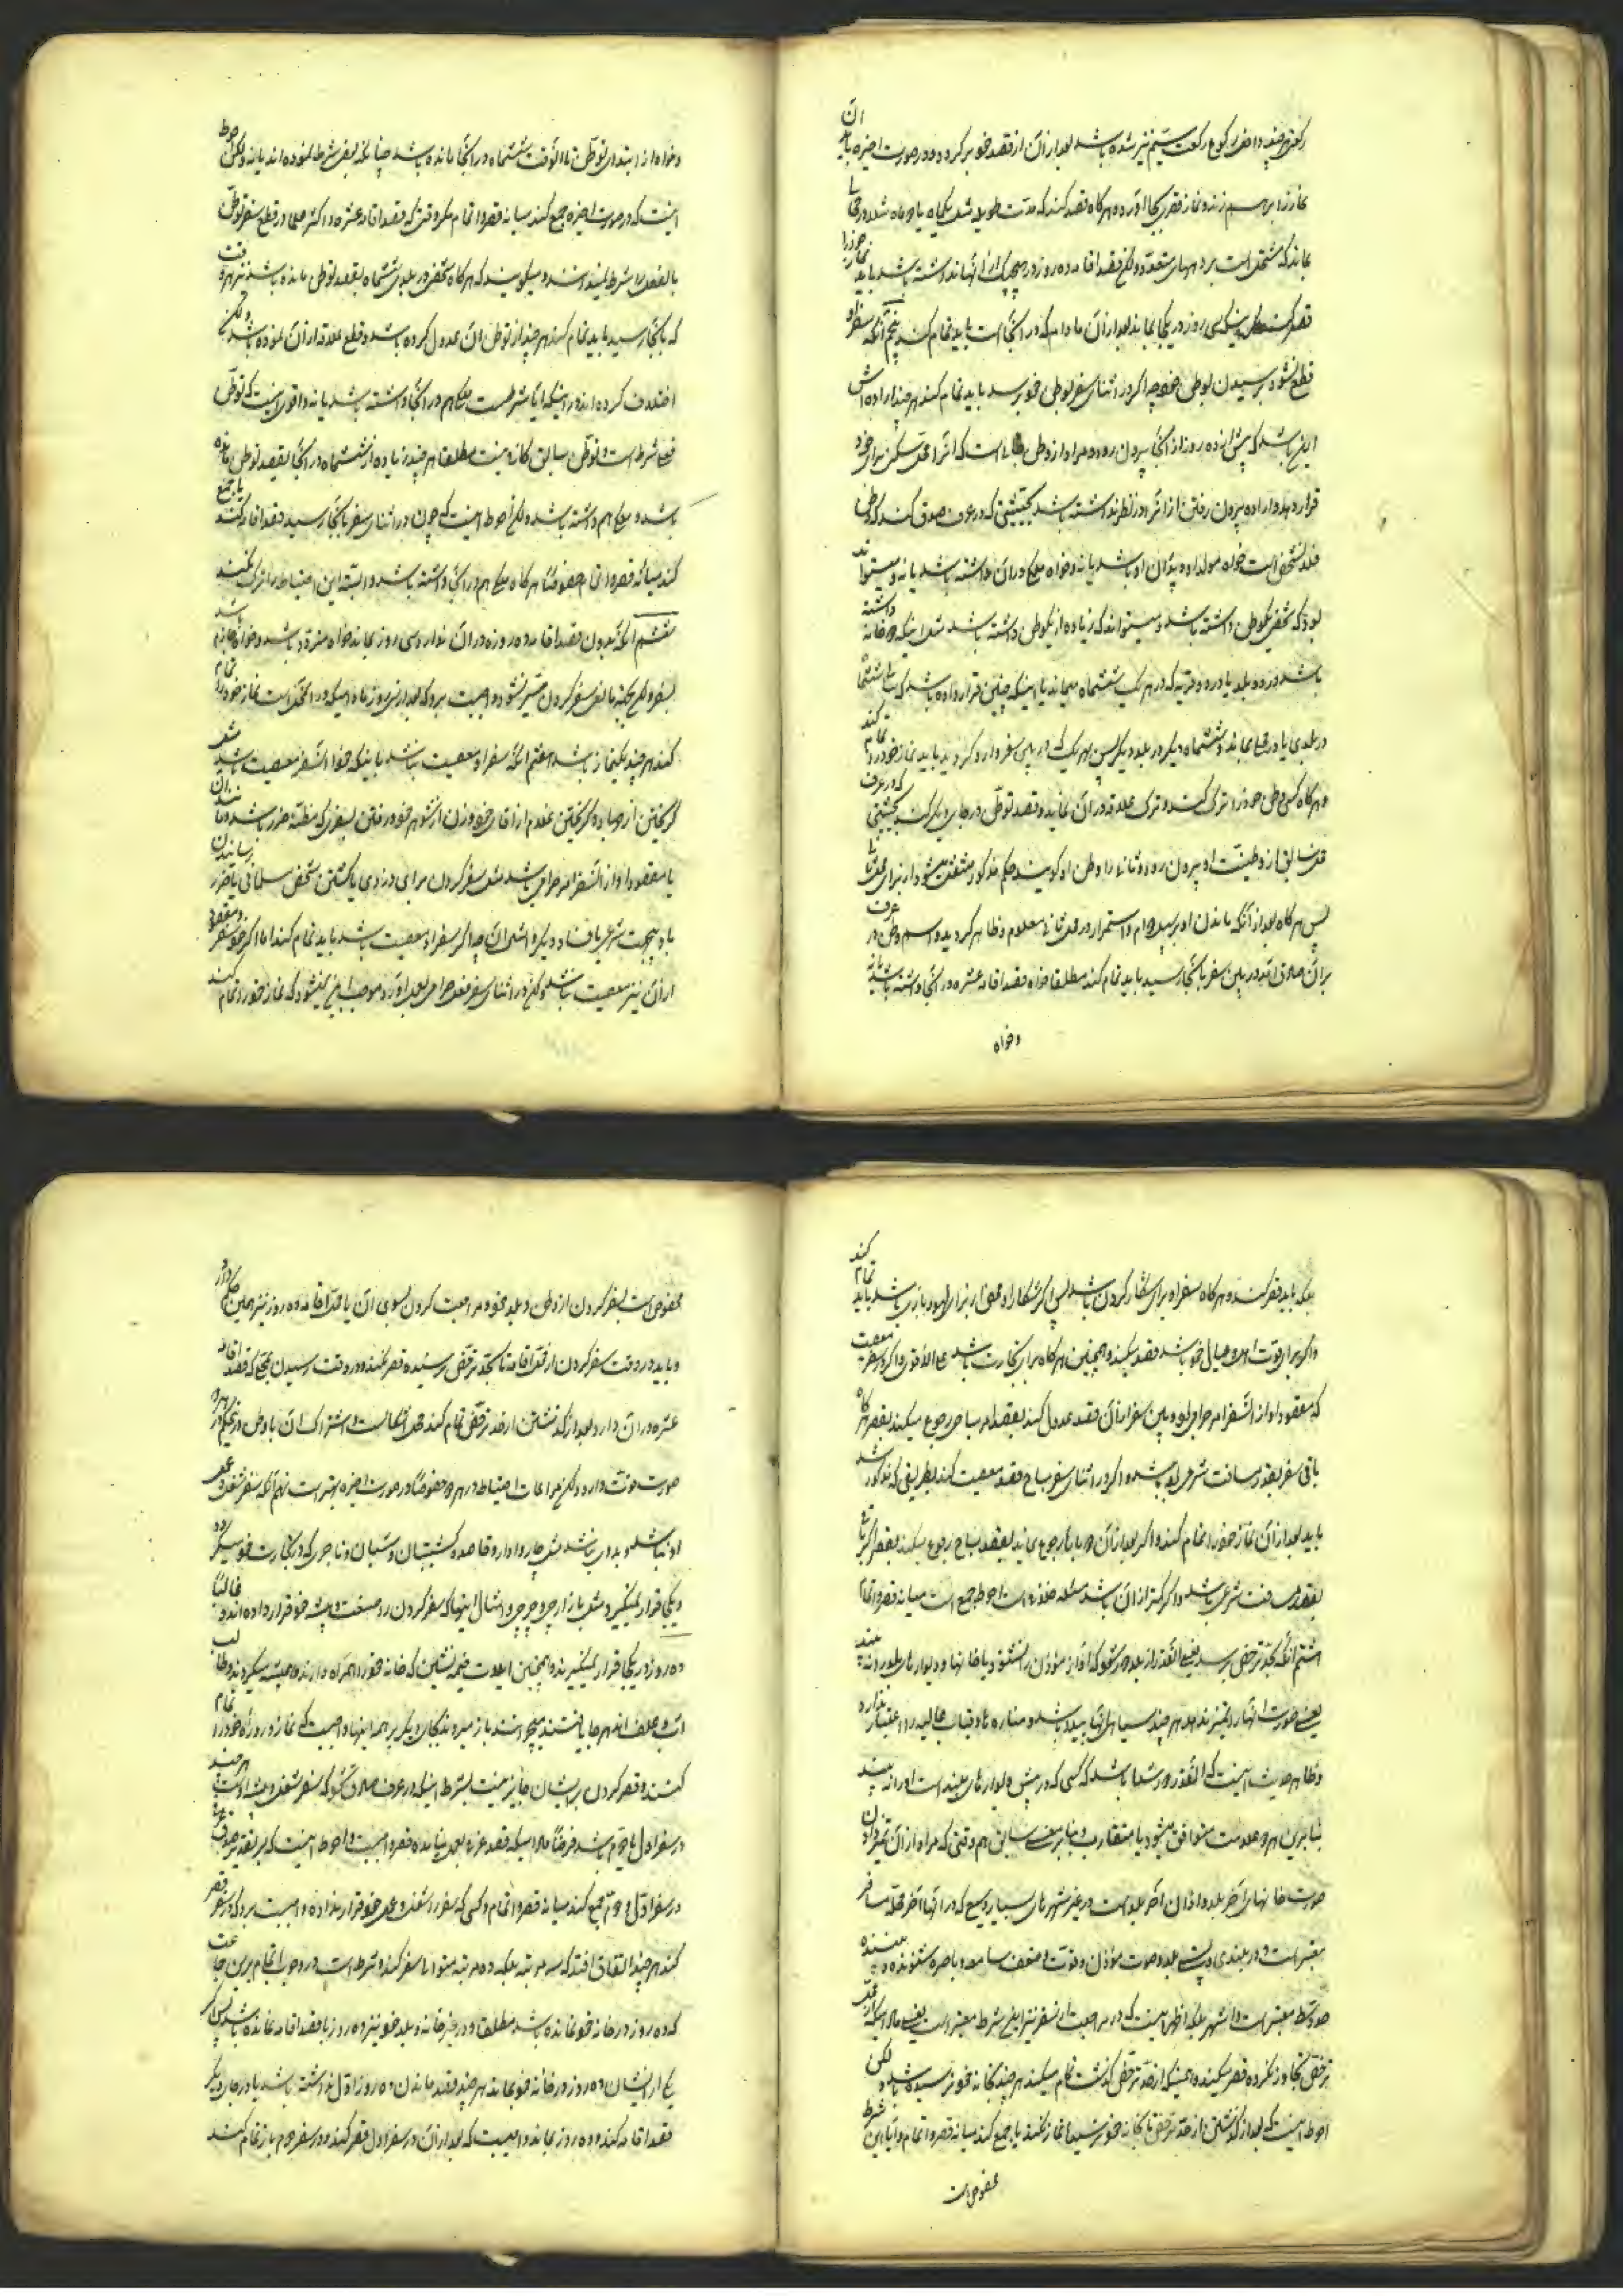 رکعتی چند و اخر رکوع رکعت سیم نیز شده باشد بعد از آن از قصد خود برگردد و در صورت اخیره باید آن
نماز را بر هم زند و نماز قصر بجا آورد و هرگاه قصد کند که مدت طویله مثل یکماه یا دو ماه مثلا در جائی
بماند که مشتمل است بر دههای متعدد و لکن قصد اقامه ده روز در هیچیک از آنها نداشته باشد باید نماز خود را
قصر کند مگر اینکه سی روز در یکجا بماند بعد از آن مادام که در آنجا است باید تمام کند پنجم آنکه سفر او
قطع نشود برسیدن بوطن خود چه اگر در اثنای سفر بوطن خود برسد باید تمام کند هر چند اراده اش
این باشد که پیش از ده روز از آنجا بیرون رود و مراد از وطن جائی است که آنرا محل سکنی برای خود
قرار دهد و اراده بیرون رفتن از آنرا در نظر نداشته باشد بحیثیتی که در عرف صدق کند که وطن
فلان شخص است خواه مولد او و پدران او باشد یا نه و خواه ملک در آن داشته باشد یا نه و میتواند
بود که شخص یک وطن داشته باشد و میتواند که زیاده از یک وطن داشته باشد مثل اینکه دو خانه داشته
باشد در دو بلد یا در دو قریه که در هر یک ششماه میماند یا اینکه چنین قرار داده باشد که ششماه
در بلدی یا در جائی بماند و ششماه دیگر در بلد دیگر پس بهر یک که در بین سفر وارد گردید باید نماز خود را تمام کند
و هرگاه کسی وطن خود را ترک کند و ترک علاقه در آن نماید و قصد توطن در جای دیگر کند بحیثیتی که در عرف
محل سابق از وطنیت او بیرون رود و ثانی را وطن او گویند حکم مذکور منتفی میشود از برای محل ثانی
پس هرگاه بعد از آنکه ماندن او بر سبیل دوام و استمرار در محل ثانی معلوم و ظاهر گردید و اسم وطن در عرف
بر آن صادق آمد در بین سفر بآنجا رسید باید تمام کند مطلقا خواه قصد اقامه عشره در آنجا داشته باشد یا نه
و خواه
و خواه از ابتدای توطن تا آنوقت ششماه در آنجا مانده باشد چنانکه بعض شرط نموده اند یا نه و لکن احوط
اینست که در صورت اخیره جمع کند میانه قصر و اتمام مگر وقتی که قصد اقامه عشره و اکثر علما در قطع سفر توطن
بالفعل را شرط نمیدانند و میگویند که هرگاه شخص در بلدی ششماه بقصد توطن مانده باشد نیز هر وقت
که بآنجا رسید باید تمام کند هر چند از توطن آن عدول کرده باشد و قطع علاقه از آن نموده باشد و لکن
اختلاف کرده اند در اینکه آیا شرط است ملک هم در آنجا داشته باشد یا نه و اقوی اینست که توطن
فعلی شرط است و توطن سابق کافی نیست مطلقا هر چند زیاده از ششماه در آنجا بقصد توطن مانده
باشد و ملک هم داشته باشد و لکن احوط اینست که چون در اثنای سفر بآنجا رسید قصد اقامه کند یا جمع
کند میانه قصر و اتمام خصوصا هرگاه ملک هم در آنجا داشته باشد و البته این احتیاط را ترک نکند
ششم آنکه بدون قصد اقامه ده روزه در آن نواردسی روز بماند خواه متردد باشد و خواه جازم باشد
بسفر و لکن بجهة مانعی سفر کردن میسر نشود و واجبست بر او که بعد از سی روز مادامیکه در آنمحل است نماز خود را تمام
کند هر چند یکنماز باشد هفتم آنکه سفر او معصیت نباشد باینکه خود آنسفر معصیت باشد مثل
گریختن از جهاد و گریختن غلام از آقای خود و زن از شوهر خود و رفتن بسفری که مظنه ضرر باشد و مانند آن
یا مقصود او از آنسفر امر حرامی باشد مثل سفر کردن برای دزدی یا کشتن شخص مسلمانی یا ضرر رسانیدن
باو بیجهت شرعی یا فساد دیگر و امثال آن چه اگر سفر او معصیت باشد باید تمام کند اما اگر خود سفر و مقصود
از آن نیز معصیت نباشد و لکن در اثنای سفر فعل حرامی بعمل آورد موجب این نمیشود که نماز خود را تمام کند
بلکه باید قصر کند و هرگاه سفر او برای شکار کردن باشد پس اگر شکار او محض از برای لهو و بازی باشد باید تمام کند
و اگر برای قوت او و عیال خود باشد قصر میکند و همچنین هرگاه برای تجارت باشد علی الاقوی و اگر در سفر معصیت
که مقصود او از آنسفر امر حرامی بود و بین سفر از آن قصد عدول کند بقصد امر مباحی رجوع میکند بقصر هرگاه
باقی سفر بقدر مسافت شرعی بوده باشد و اگر در اثنای سفر مباح قصد معصیت کند بطریقی که مذکور شد
باید بعد از آن نماز خود را تمام کند و اگر بعد از آن دوباره رجوع نماید بقصد مباح رجوع میکند بقصر اگر باقی
بقدر مسافت شرعی باشد و اگر کمتر از آن باشد مسئله محل خلاف است احوط جمع است میانه قصر و اتمام
هشتم آنکه بحد ترخص برسد یعنی آنقدر از بلد دور شود که آواز مؤذن را نشنود و یا خانها و دیوارهای بلد را نبیند
یعنی صورت آنها را تمیز ندهد هر چند سیاهی آنها پیدا باشد و مناره ها و قباب عالیه را اعتبار ندارد
و ظاهر حدیث اینست که آنقدر دور شده باشد که کسی که در پیش دیوارهای بلد است او را نه بیند
بنابرین هر دو علامت متوافق میشود یا متقارب و بنابر معنی سابق هم وقتی که مراد از آن تمیز دادن
صورت خانهای آخر بلد و اذان آخر بلد است در غیر شهرهای بسیار وسیع که در آنها آخر محله مسافر
معتبر است و در بلندی و پستی بلد و صوت مؤذن و قوت و ضعف سامعه و باصره شنونده و بیننده
حد وسط معتبر است و اشهر بلکه اظهر اینست که در مراجعت از سفر نیز این شرط معتبر است یعنی مادامیکه از حد
ترخص تجاوز نکرده قصر میکند و همینکه از حد ترخص گذشت تمام میکند هر چند بخانه خود نرسیده باشد و لکن
احوط اینست که بعد از گذشتن از حد ترخص تا بخانه خود نرسید نماز نکند یا جمع کند میانه قصر و اتمام و آیا این شرط
مخصوص است
مخصوص است بسفر کردن از وطن و بلد خود و مراجعت کردن بسوی آن یا محل اقامه ده روز نیز همین حکم دارد
و باید در وقت سفر کردن از محل اقامه تا بحد ترخص نرسیده قصر نکند و در وقت رسیدن بمحلی که قصد اقامه
عشره در آن دارد بعد از گذشتن از حد ترخص تمام کند محل اشکالست و اشتراک آن با وطن در حکم در هر دو
صورت قوت دارد و لکن مراعات احتیاط در هر دو خصوصا در صورت اخیره بهتر است نهم آنکه سفر شغل و عمل
او نباشد و بدوی نباشد مثل چاروادار و قاصد و کشتیبان و شبان و تاجری که در تجارت خود میگردد
و یکجا قرار نمیگیرد مثل بازارچی و چرچی و امثال اینها که سفر کردن را صنعت و پیشه خود قرار داده اند و غالبا
ده روز در یکجا قرار نمیگیرند و همچنین ایلات خیمه نشین که خانه خود را همراه دارند و همیشه میگردند و طالب
آب و علف اند هر جا یافتند میچرانند باز میروند بمکان دیگر بر همه اینها واجبست که نماز و روزه خود را تمام
کنند و قصر کردن بر ایشان جایز نیست بشرط اینکه در عرف صادق شود که سفر شغل و پیشه اوست هر چند
در سفر اول یا دویم باشد فرضا مادامیکه قصد عرفا بعمل نیامده قصر واجبست و احوط اینست که بر تقدیر صدق عرفی
در سفر اول و دویم جمع کند میانه قصر و اتمام و کسی که سفر را شغل و عمل خود قرار نداده واجبست بر او که در سفر قصر
کند هر چند اتفاق افتد که سه مرتبه بلکه ده مرتبه متوالی سفر کند و شرط است در وجوب اتمام برین جماعت
که ده روز در خانه خود نمانده باشند مطلقا و در غیر خانه و بلد خود نیز ده روز با قصد اقامه نمانده باشد پس اگر
یکی از ایشان ده روز در خانه خود بماند هر چند قصد ماندن ده روز از اول نداشته باشد یا در جای دیگر
قصد اقامه کند و ده روز بماند واجبست که بعد از آن در سفر اول قصر کند و در سفر دویم باز تمام کند